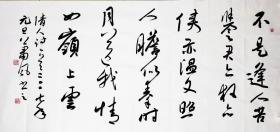 不是逢人苦
誉君亦狂亦
侠亦温文照
人膽似秦时
月送我情
如嶺上雲
清人诗
元旦